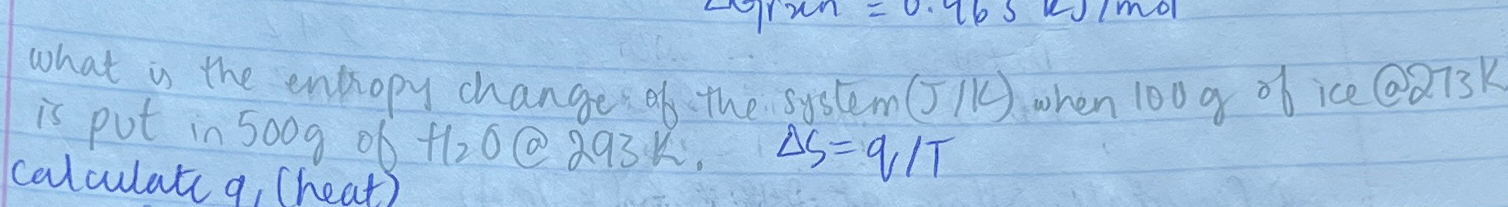 ΔGrxn = 0.963 KJ/mol
what is the entropy change of the system (J/K) when 100g of ice @273K
is put in 500g of H2O @ 293K. ΔS=q/T
calculate q, (heat)